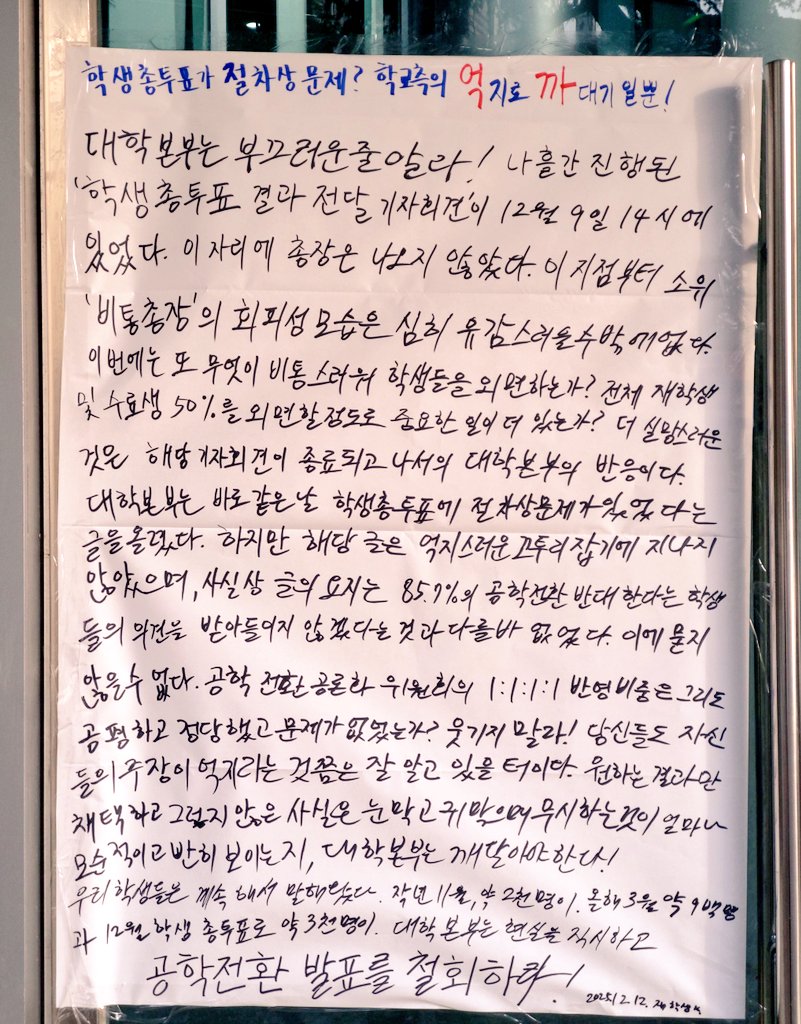 학생총투표가 절차상 문제? 학교측의 억지로 까대기일뿐!
대학본부는 부끄러운줄알라! 나흘간 진행된
'학생총투표 결과 전달 기자회견'이 12월 9일 14시에
있었다. 이 자리에 총장은 나오지 않았다. 이 지점부터 소위
'비통총장'의 회피성 모습은 심히 유감스러울수밖에없다.
이번에는 또 무엇이 비통스러워 학생들을 외면하는가? 전체 재학생
및 수료생 50%를 외면할정도로 중요한 일이 더 있는가? 더 실망스러운
것은 해당기자회견이 종료되고 나서의 대학본부의 반응이다.
대학본부는 바로같은날 학생총투표에 절차상문제가있었다는
글을올렸다. 하지만 해당 글은 억지스러운고투리잡기에 지나지
않았으며, 사실상 글의 요지는 85.7%의 공학전환 반대한다는 학생
들의 의견을 받아들이지 않겠다는것과다를바 없었다. 이에 묻지
않을수 없다. 공학 전환 공론화 위원회의 1:1:1:1 반영비중은그리도
공평하고 정당했고 문제가없었는가? 웃기지 말라! 당신들도 자신
들의주장이 억지라는 것쯤은 잘 알고 있을 터이다. 원하는 결과만
채택하고그렇지 않은 사실은 눈막고 귀막으며무시하는것이 얼마나
모순적이고 반히 보이는지, 대학본부는 깨달아야한다!
우리학생들은 계속 해서 말해왔다. 작년 11월, 약 2천명이. 올해 3월 약 9백명
과 12월 학생 총투표로 약 3천명이. 대학본부는 현실을직시하고
공학전환 발표를 철회하라!
2025.12.12. 재학생